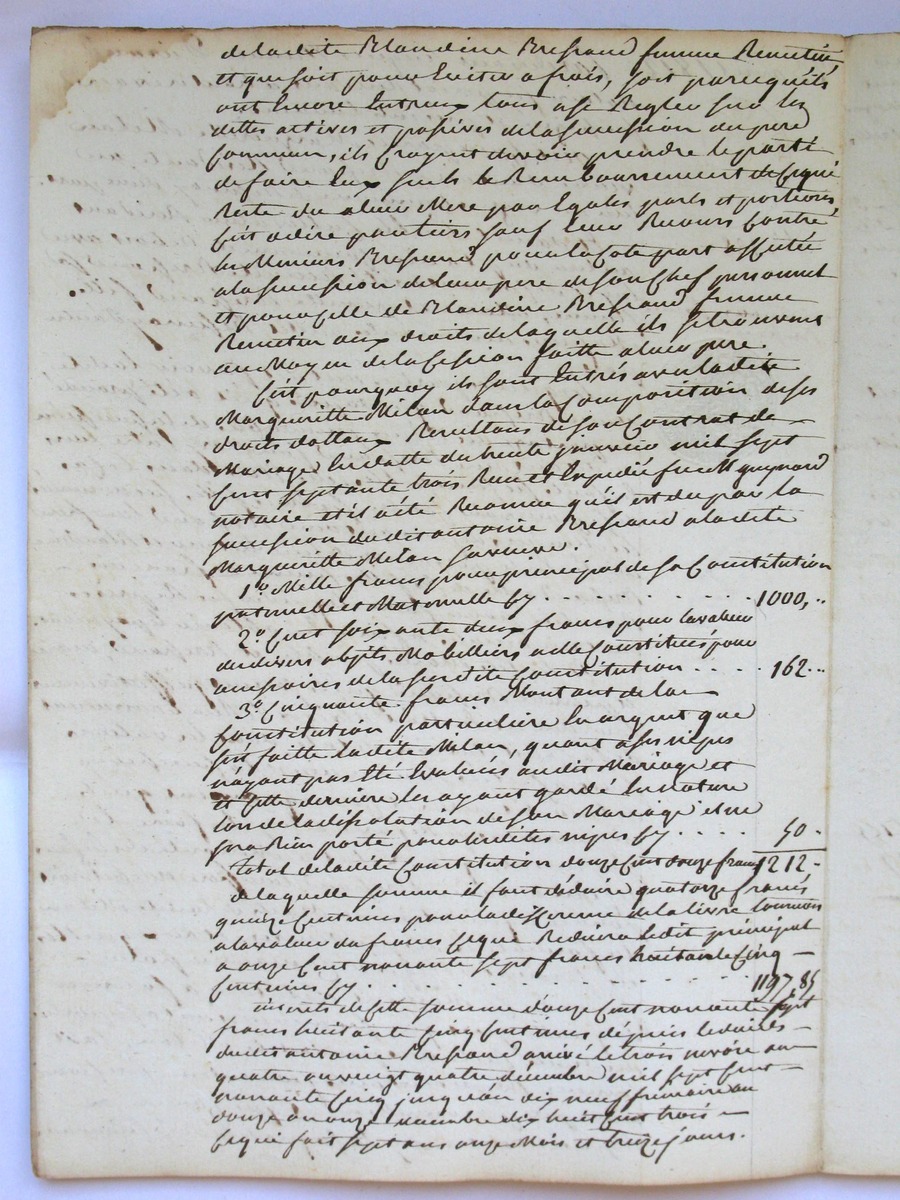 de ladite Blandine Bressand femme Remetin
et que soit pour Eviter a frais, soit parcequ'ils
ont Encore Entreux tous a se Regler sur les
dettes actives et passives de la succession du pere
Commun, ils Croyent devoir prendre le parti
de faire Eux seuls le Remboursement de Ce qui
Reste du a leur Mere par Egales parts et portions,
C'est a dire par tiers sauf leur Recours Contre
les Mineurs Bressand pour la Cote part affectée
a la succession de leur pere de son Chef personnel
et pour Celle de Blandine Bressand femme
Remetin aux droits de laquelle ils se trouvent
au Moyen de la Cession faitte a leur pere.
C'est pourquoy ils sont Entrés avec ladite
Marguerite Milan dans la Composition de ses
droits dottaux Resultans de son Contrat de
Mariage En datte du trente janvier mil sept
Cent septante trois Reçu et Expedié par Me guynard
notaire et il a été Reconnu qu'il est du par la
succession dudit antoine Bressand a ladite
Marguerite Milan sa veuve.
1.º Mille francs pour principal de sa Constitution
paternelle et Maternelle Cy . . . . . . . . . . 1000,..
2.º Cent soixante deux francs pour la valeur
de divers objets Mobilliers a elle Constitués pour
accessoires de la susdite Constitution . . . . 162...
3.º Cinquante francs Montant de la
Constitution particuliere En argent que
s'est faitte ladite Milan, quant a ses nipes
n'ayant pas Eté Evaluées audit Mariage et
et Cette derniere les ayant gardé En Nature
lors de la dissolution de son Mariage il ne
sera Rien porté pour lesdites nipes Cy . . . . 50.
Total de ladite Constitution douze Cent douze francs 1212.
de laquelle somme il faut déduire quatorze francs
quinze Centimes pour la difference de la livre tournois
a la valeur du francs Ce qui Reduira ledit principal
a onze Cent nonante sept francs huitante Cinq
Centimes Cy . . . . . . . . . . . 1197,85
interets de Cette somme d'onze Cent nonante sept
francs huitante Cinq Centimes depuis le décès
dudit antoine Bressand arrivé le trois nivôse an
quatre ou vingt quatre décembre mil sept Cent
nonante Cinq jusqu'au dix neuf frimaire an
douze ou onze décembre dix huit Cent trois
Ce qui fait sept ans onze Mois et treize jours.